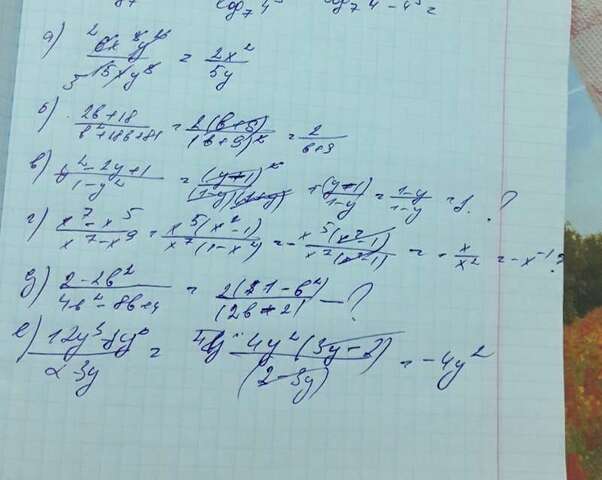 log₇4 log₇4 - 4³ =
а) 6x³y² / 15xy³ = 2x² / 5y
б) 2b+18 / b²+18b+81 = 2(b+9) / (b+9)² = 2 / b+9
в) y²-2y+1 / 1-y² = (y-1)² / (1-y)(1+y) + (y-1) / 1-y = 1-y / 1-y = 1. ?
г) x⁷-x⁵ / x⁷-x⁹ = x⁵(x²-1) / x⁷(1-x²) = - x⁵(x²-1) / x⁷(x²-1) = - x / x² = -x⁻¹?
д) 2-2b² / 4b²-8b+4 = 2(1-b²) / (2b-2) - ?
е) 12y³-8y² / 2-3y = 4y²(3y-2) / (2-3y) = -4y²